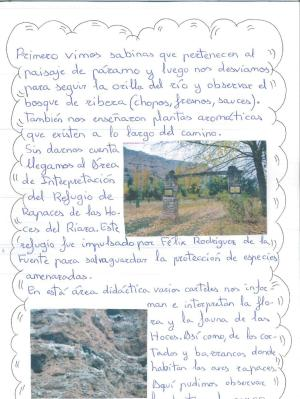 Primero vimos sabinas que pertenecen al
paisaje de páramo y luego nos desviamos
para seguir la orilla del río y observar el
bosque de ribera (chopos, fresnos, sauces).
También nos enseñaron plantas aromáticas
que existen a lo largo del camino.
Sin darnos cuenta
llegamos al Área
de Interpretación
del Refugio de
Rapaces de las Ho-
ces del Riaza. Este
refugio fue impulsado por Félix Rodríguez de la
Fuente para salvaguardar la protección de especies
amenazadas.
En está área didáctica varios carteles nos infor-
man e interpretan la flo-
ra y la fauna de las
Hoces. Así como, de los cor-
tados y barrancos donde
habitan las aves rapaces.
Aquí pudimos observar